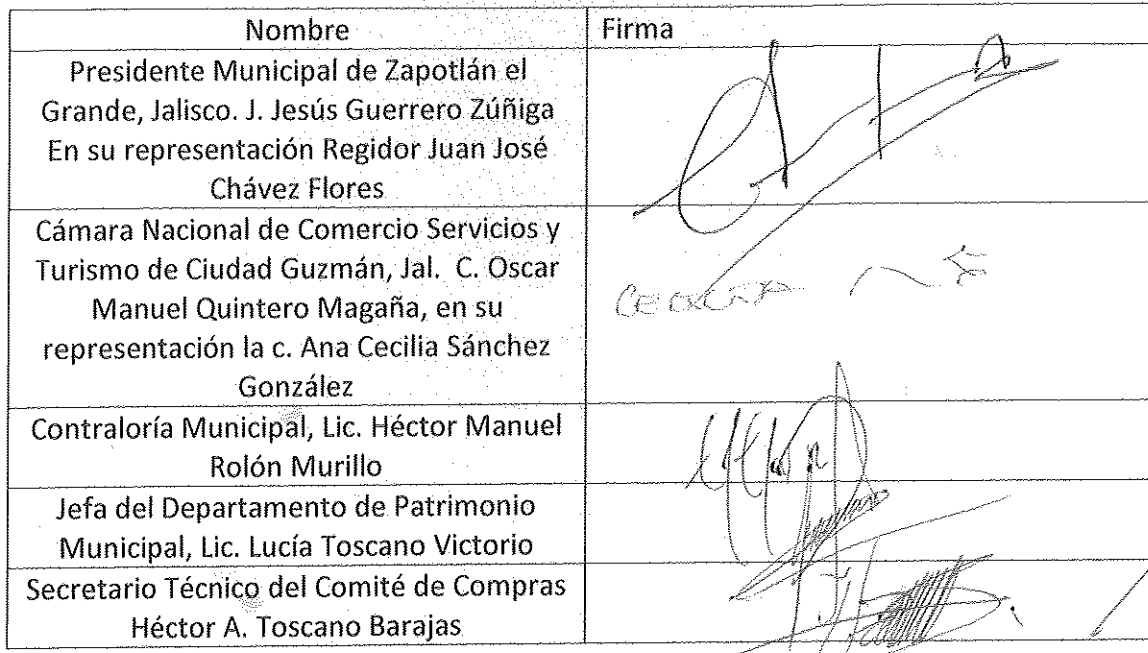 Nombre
Firma
Presidente Municipal de Zapotlán el
Grande, Jalisco. J. Jesús Guerrero Zúñiga
En su representación Regidor Juan José
Chávez Flores
Cámara Nacional de Comercio Servicios y
Turismo de Ciudad Guzmán, Jal. C. Oscar
Manuel Quintero Magaña, en su
representación la c. Ana Cecilia Sánchez
González
Contraloría Municipal, Lic. Héctor Manuel
Rolón Murillo
Jefa del Departamento de Patrimonio
Municipal, Lic. Lucía Toscano Victorio
Secretario Técnico del Comité de Compras
Héctor A. Toscano Barajas